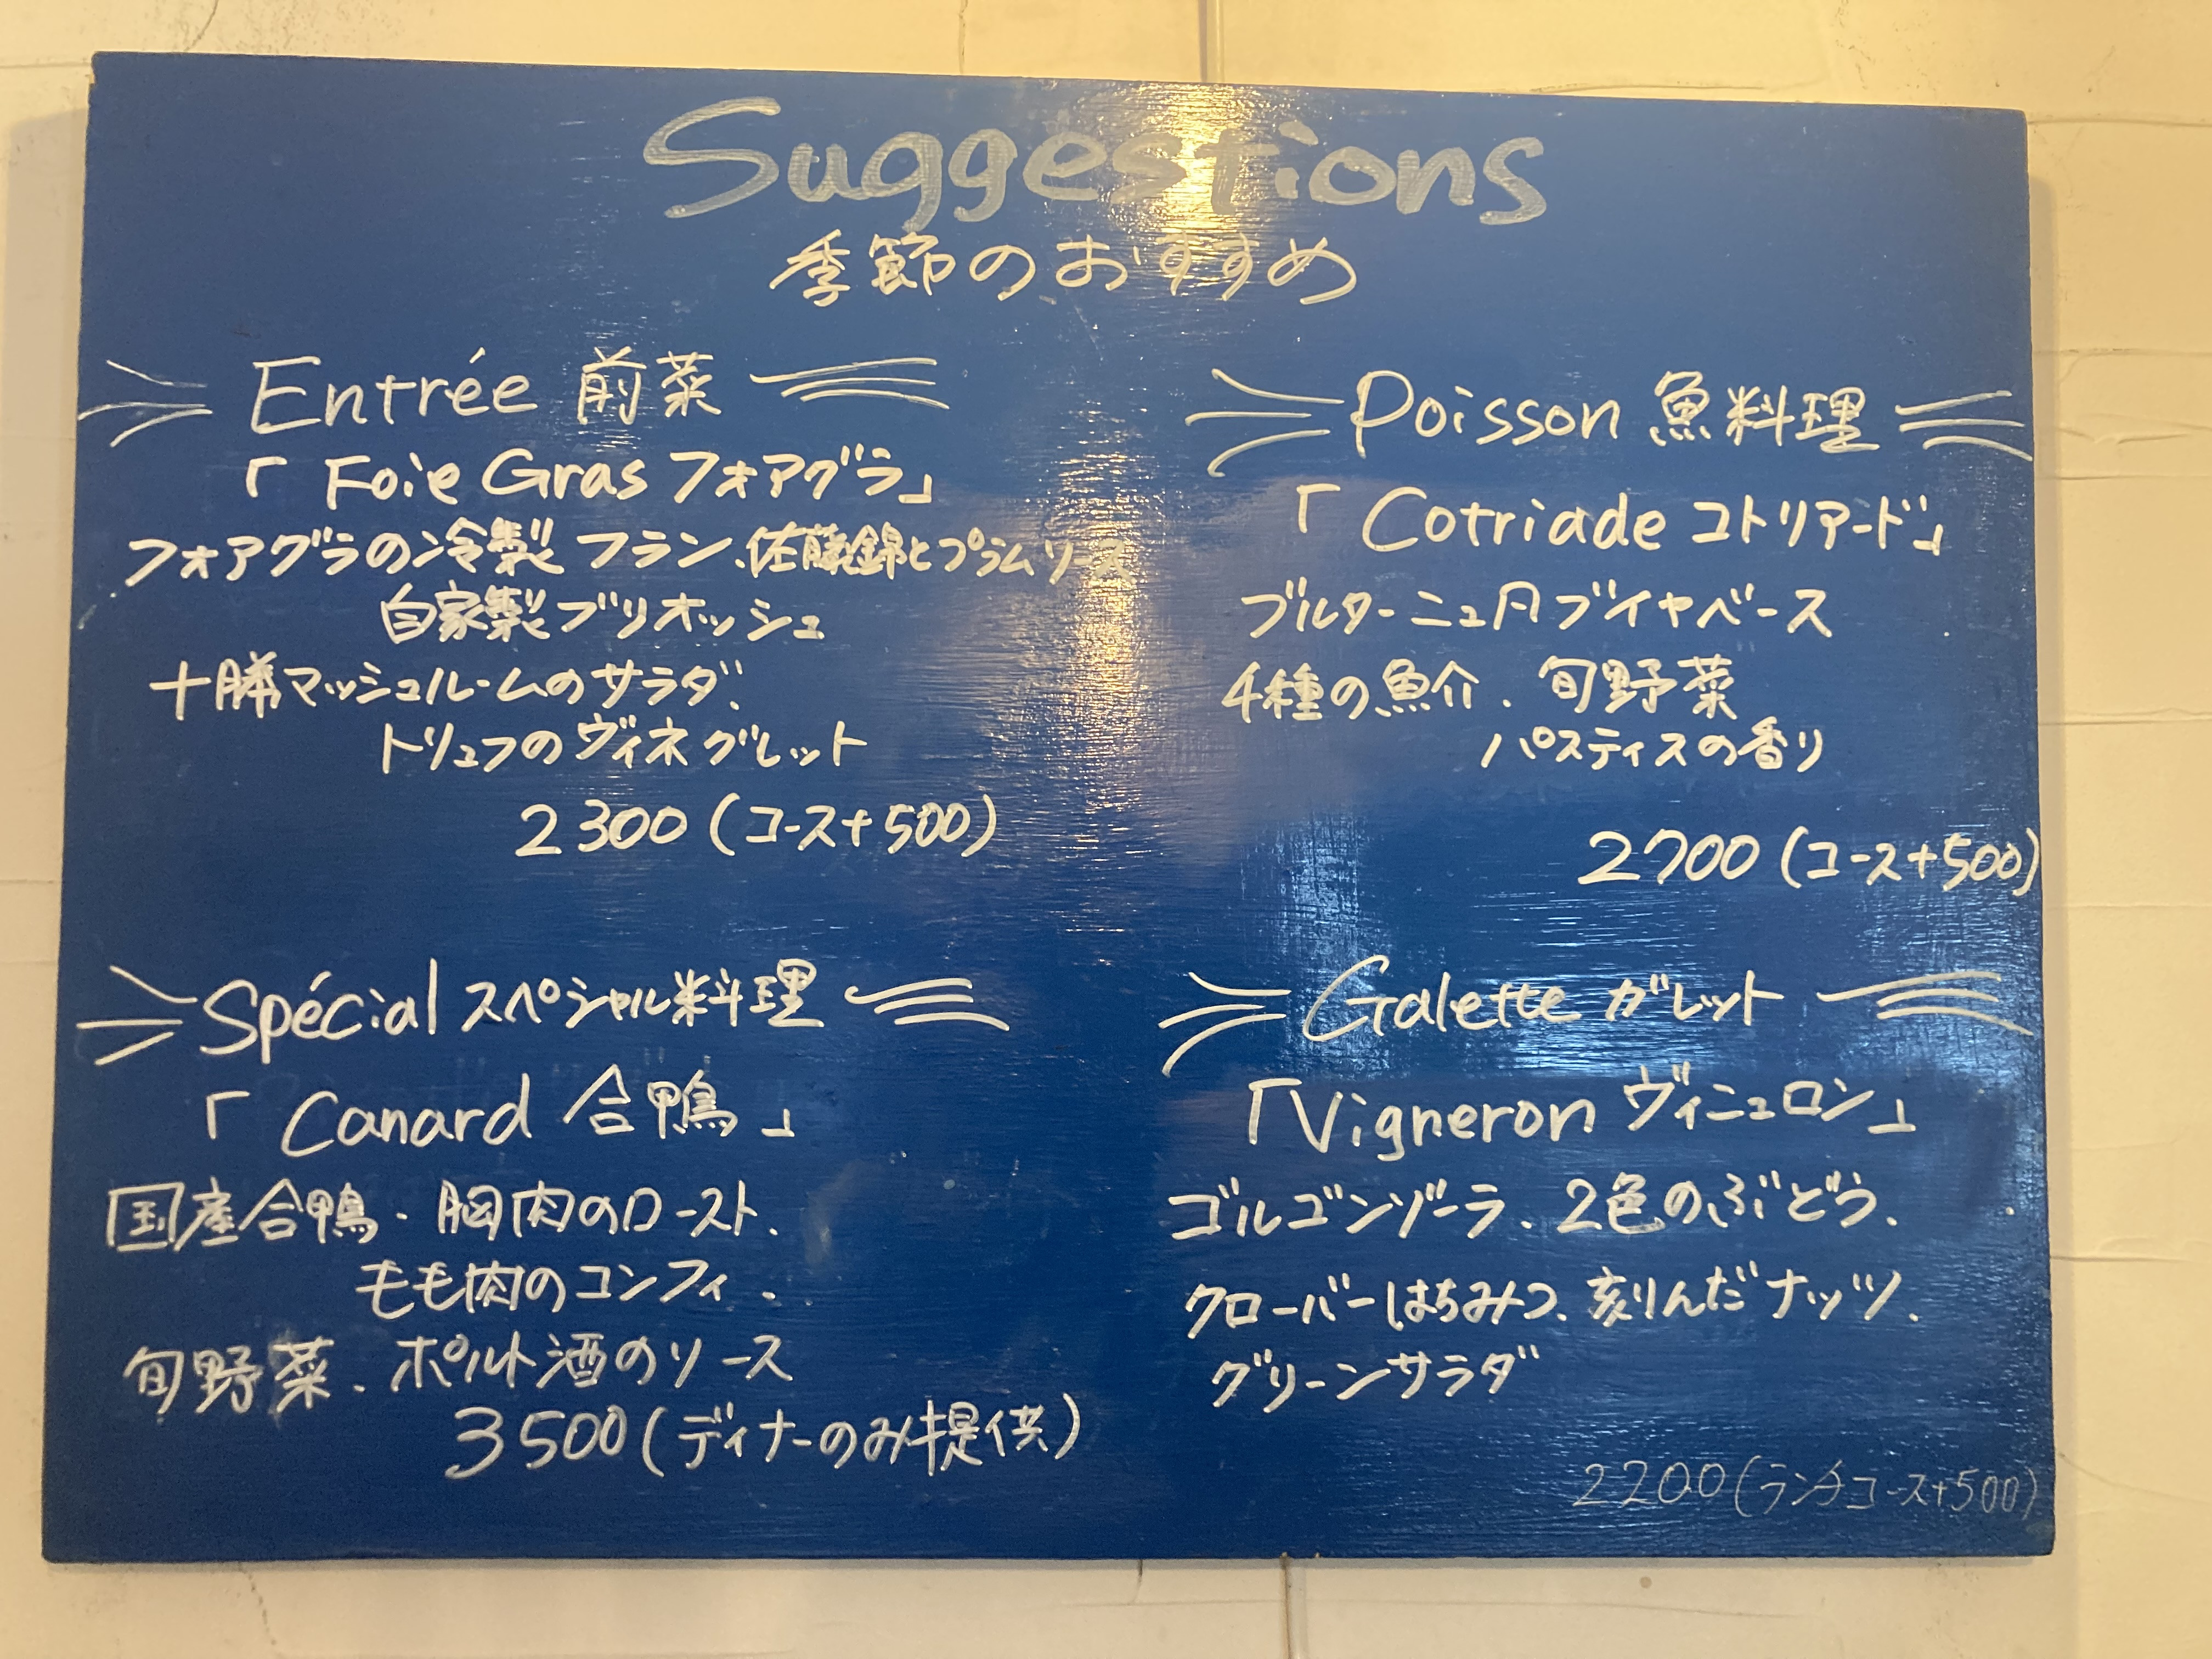 Suggestions
季節のおすすめ
Entrée 前菜
「Foie Gras フォアグラ」
フォアグラの冷製フラン、佐藤錦とプラムソース
自家製ブリオッシュ
十勝マッシュルームのサラダ、
トリュフのヴィネグレット
2300（コース+500）
Poisson 魚料理
「Cotriade コトリアード」
ブルターニュ風ブイヤベース
4種の魚介、旬野菜
パスティスの香り
2700（コース+500）
Spécial スペシャル料理
「Canard 合鴨」
国産合鴨、胸肉のロースト、
もも肉のコンフィ、
旬野菜、ポルト酒のソース
3500（ディナーのみ提供）
Galette ガレット
「Vigneron ヴィニュロン」
ゴルゴンゾーラ、2色のぶどう、
クローバーはちみつ、刻んだナッツ、
グリーンサラダ
2200（ランチコース+500）